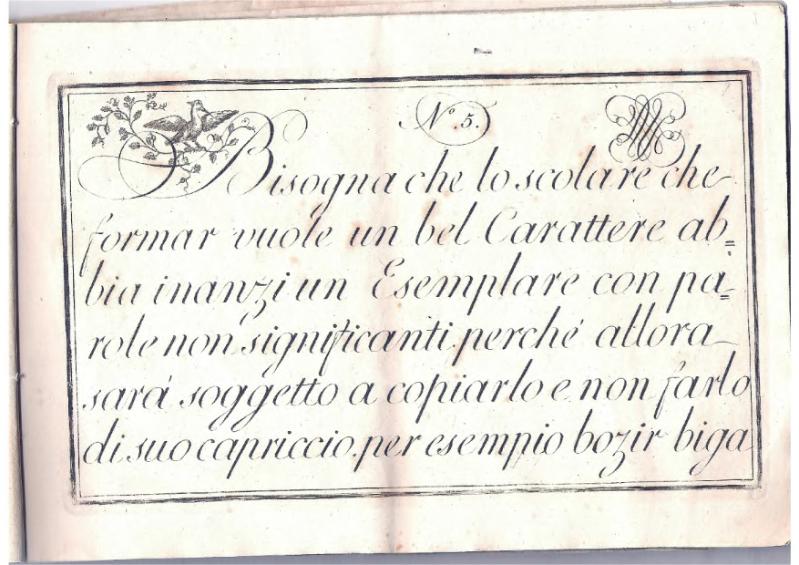 Nº 5.
Bisogna che lo scolare che
formar vuole un bel Carattere ab=
bia inanzi un Esemplare con pa=
role non significanti perché allora
sará soggetto a copiarlo e non farlo
di suo capriccio. per esempio bozir biga